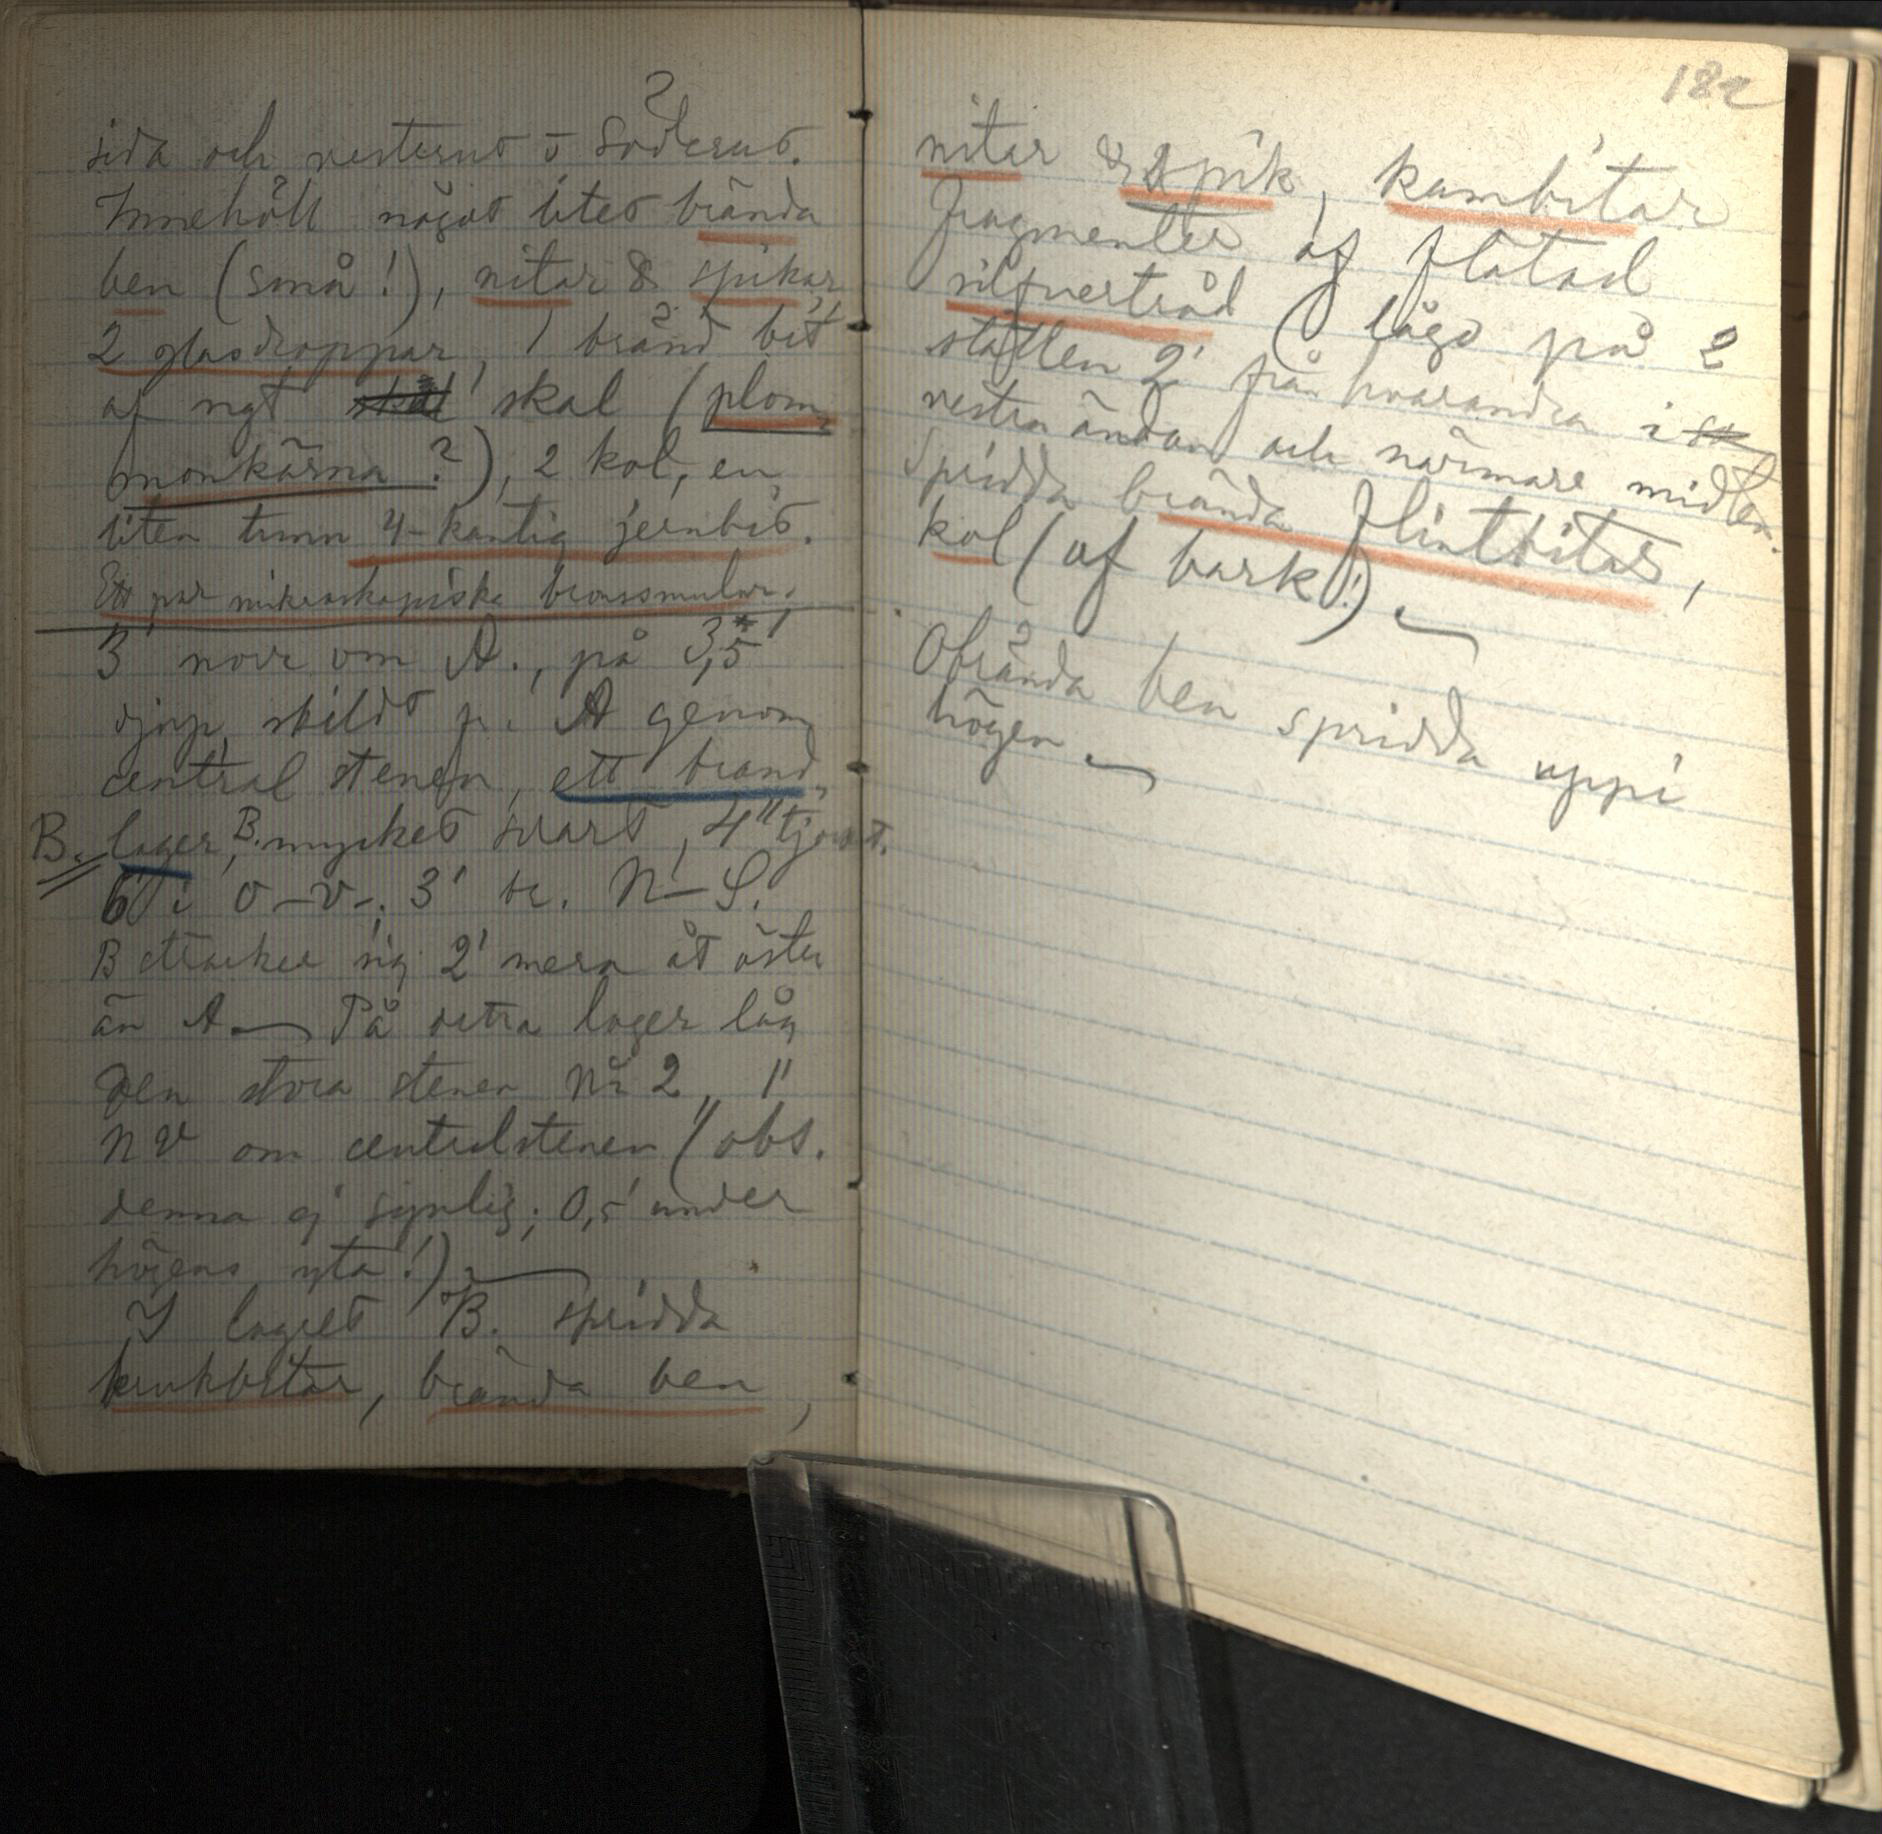 sida och vesterut o Söderut.
Innehöll något litet brända
ben (små!), nitar & spikar
2 glasdroppar, 1 bränd bit
af ngt skal (plom
monkärna?), 2 kol, en
liten tunn 4-kantig jernbit.
Ett par mikroskopiska bronssmulor.
3' nore om A., på 3,5'
djup, skildt fr. A genom
central stenen, ett brand
B. lager, B. mycket svart, 4" tjockt.
6' i o-v-. 3' br. N-S.
B sträcker sig 2' mera åt öster
än A. På detta lager låg
den stora stenen Nr 2, 1'
NV om centralstenen (obs.
denna ej synlig; 0,5' under
högens yta!).
I lagret B. spridda
krukbitar, brända ben,
182
nitar & spik, kambitar
fragmenter af flätad
silfvertråd (lågo på 2
ställen 2' från hvarandra i
vestra ändan och närmare midten.
Spridda brända flintbitar,
kol (af bark!)
Obrända ben spridda uppi
högen